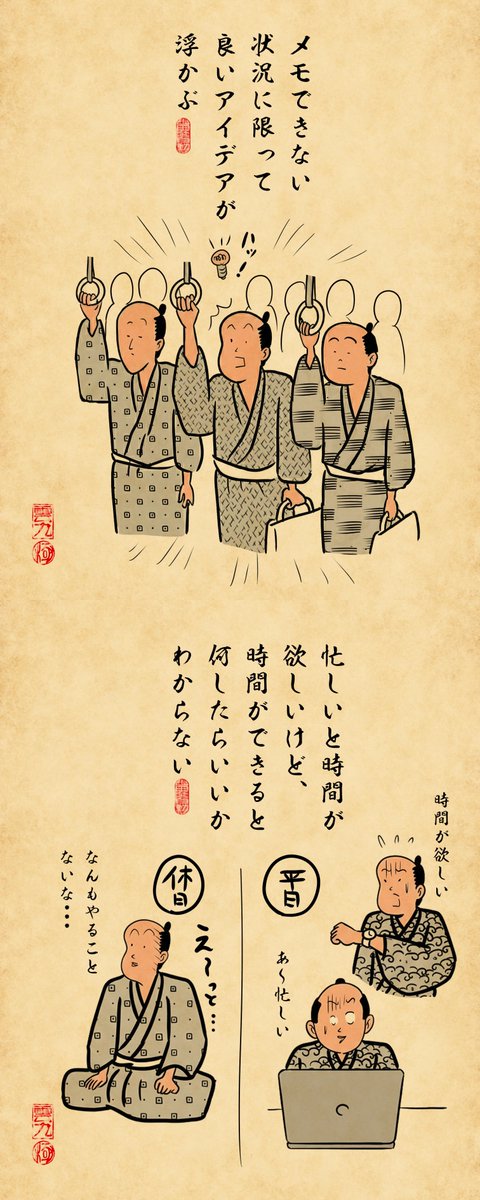 メモできない
状況に限って
良いアイデアが
浮かぶ
ハッ!
忙しいと時間が
欲しいけど、
時間ができると
何したらいいか
わからない
時間が欲しい
平日
あ〜忙しい
休日
え〜っと…
なんもやること
ないな…